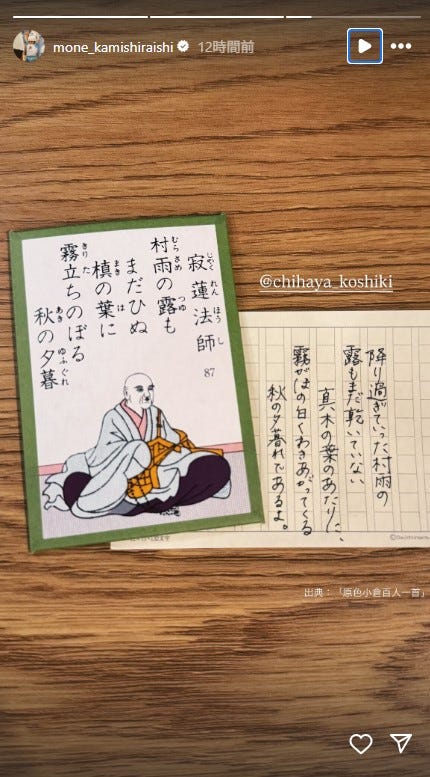 mone_kamishiraishi 12時間前
寂蓮法師
じやくれんほうし
87
村雨の露も
むらさめ つゆ
まだひぬ
槙の葉に
まき は
霧立ちのぼる
きりた
秋の夕暮
あき ゆふぐれ
@chihaya_koshiki
降り過ぎていった村雨の
露もまだ乾いていない
真木の葉のあたりに、
霧がほの白くわきあがってくる
秋の夕暮れであるよ。
出典：「原色小倉百人一首」